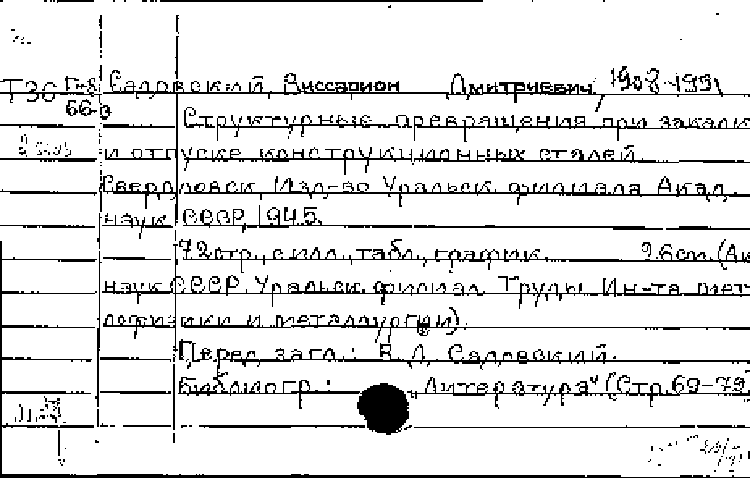 Т36 Г-8 Садовский, Виссарион Дмитриевич, 1908-1991
66-9
Структурные превращения при закалк
и отпуске конструкционных сталей.
Свердловск, Изд-во Уральск. филиала Акад.
наук СССР, 1945.
72 стр., с илл., табл., график. 26 см. (Ак
наук СССР. Уральск. филиал. Труды Ин-та мет
лофизики и металлургии).
Перед загл.: В. Д. Садовский.
Библиогр.: „Литература“ (Стр. 69-72)